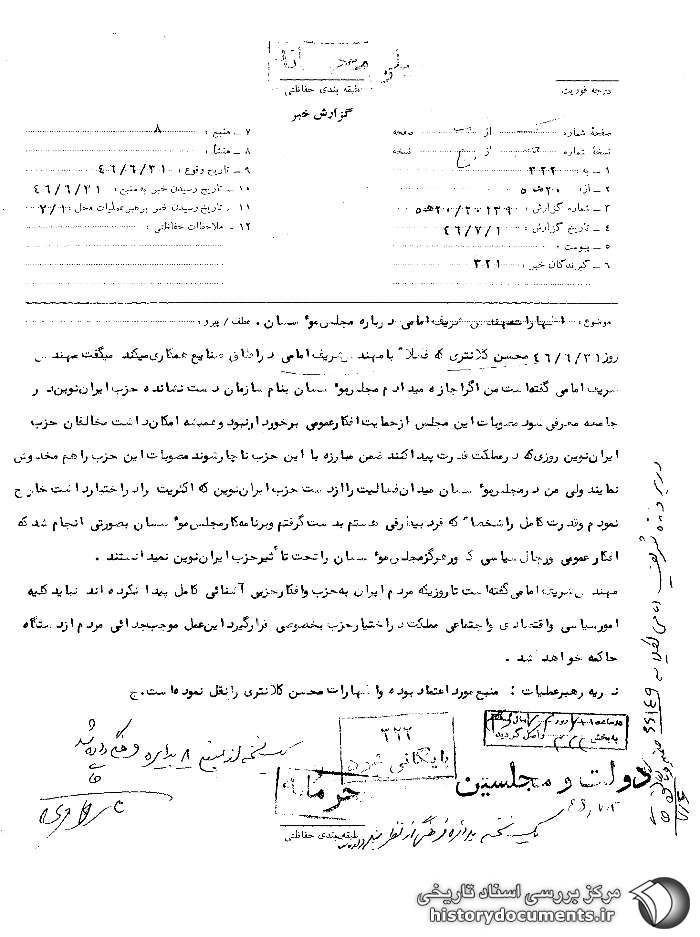 طبقه بندی حفاظتی
درجه فوریت
گزارش خبر
صفحهٔ شماره از صفحه
نسخهٔ شماره از نسخه
۱ ـ به ۳۲۲
۲ ـ از: ۲۰ ه‍ ۵
۳ ـ شماره گزارش: ۲۰/۲۰۱۳۹۰ ه‍ ۵
۴ ـ تاریخ گزارش: ۴۶/۷/۱
۵ ـ پیوست:
۶ ـ گیرندگان خبر: ۳۲۱
۷ ـ منبع: ۸
۸ ـ منشأ:
۹ ـ تاریخ وقوع: ۴۶/۶/۳۱
۱۰ ـ تاریخ رسیدن خبر به منبع: ۴۶/۶/۳۱
۱۱ ـ تاریخ رسیدن خبر به رهبر عملیات محل: ۷/۱
۱۲ ـ ملاحظات حفاظتی:
موضوع: اظهارات مهندس شریف امامی درباره مجلس مؤسسان. عطف/پیرو:
روز ۴۶/۶/۳۱ محسن کلانتری که فعلاً با مهندس شریف امامی در اطاق صنایع همکاری میکند میگفت مهندس
شریف امامی گفته است من اگر اجازه میدادم مجلس مؤسسان بنام سازمان دست نشانده حزب ایران نوین در
جامعه معرفی شود مصوبات این مجلس از حمایت افکار عمومی برخوردار نبود و همیشه امکان داشت مخالفان حزب
ایران نوین روزی که در مملکت قدرت پیدا کنند ضمن مبارزه با این حزب ناچار شوند مصوبات این حزب را هم مخدوش
نمایند ولی من در مجلس مؤسسان میدان فعالیت را از دست حزب ایران نوین که اکثریت را در اختیار داشت خارج
نمودم و قدرت کامل را شخصاً که فرد بیطرفی هستم بدست گرفتم و برنامه کار مجلس مؤسسان بصورتی انجام شد که
افکار عمومی و رجال سیاسی کشور هرگز مجلس مؤسسان را تحت تأثیر حزب ایران نوین نمیدانستند.
مهندس شریف امامی گفته است تا روزیکه مردم ایران به حزب و افکار حزبی آشنائی کامل پیدا نکرده اند نباید کلیه
امور سیاسی و اقتصادی و اجتماعی مملکت در اختیار حزب بخصوصی قرار گیرد این عمل موجب جدائی مردم از دستگاه
حاکمه خواهد شد.
نظریه رهبر عملیات: منبع مورد اعتماد بوده و اظهارات محسن کلانتری را نقل نموده است. ج
۳۲۲
بایگانی شود
واصل گردید
دولت و مجلسین
۴۶/۷/۲
طبقه بندی حفاظتی
مرکز بررسی اسناد تاریخی
historydocuments.ir